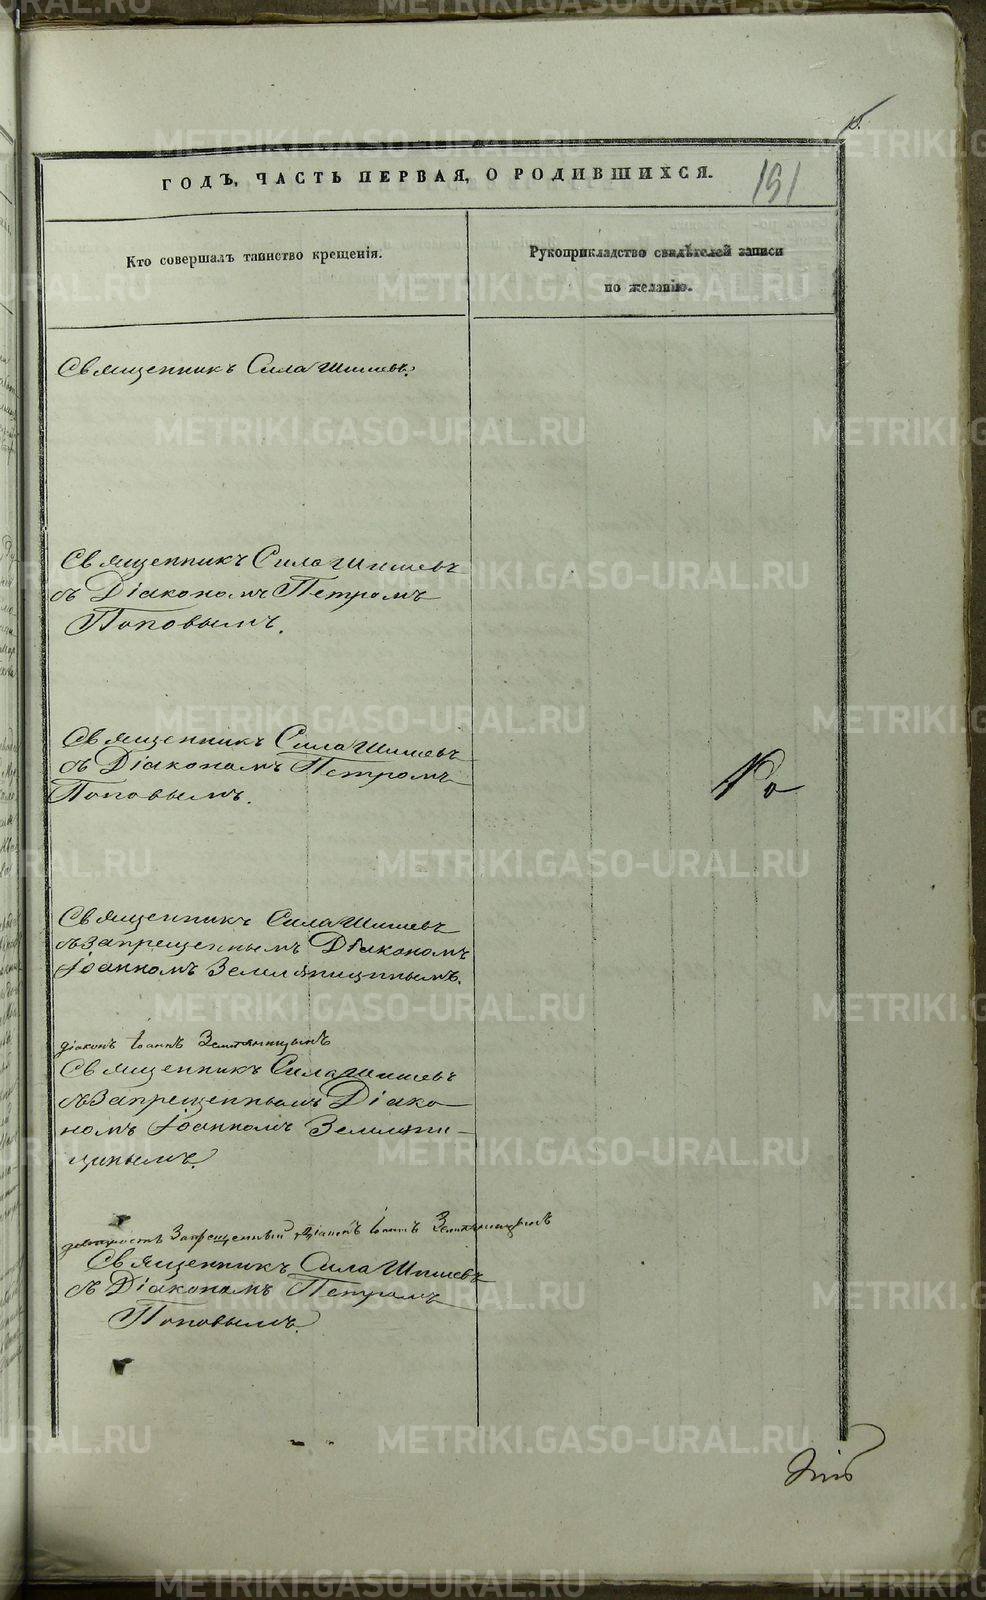 15.
ГОДЪ, ЧАСТЬ ПЕРВАЯ, О РОДИВШИХСЯ.
191
Кто совершалъ таинство крещенія.
Рукоприкладство свидѣтелей записи
по желанію.
Священникъ Сила Шишевъ.
Священникъ Сила Шишевъ
съ Діакономъ Петромъ
Поповымъ.
Священникъ Сила Шишевъ
съ Діакономъ Петромъ
Поповымъ.
Священникъ Сила Шишевъ
съ запрещеннымъ Діакономъ
Іоанномъ Земляницынымъ.
діаконъ Іоаннъ Земляницынъ
Священникъ Сила Шишевъ
съ Запрещеннымъ Діако-
номъ Іоанномъ Земляни-
цынымъ.
Запрещенный Діаконъ Іоаннъ Земляницынъ
Священникъ Сила Шишевъ
съ Діакономъ Петромъ
Поповымъ.
METRIKI.GASO-URAL.RU